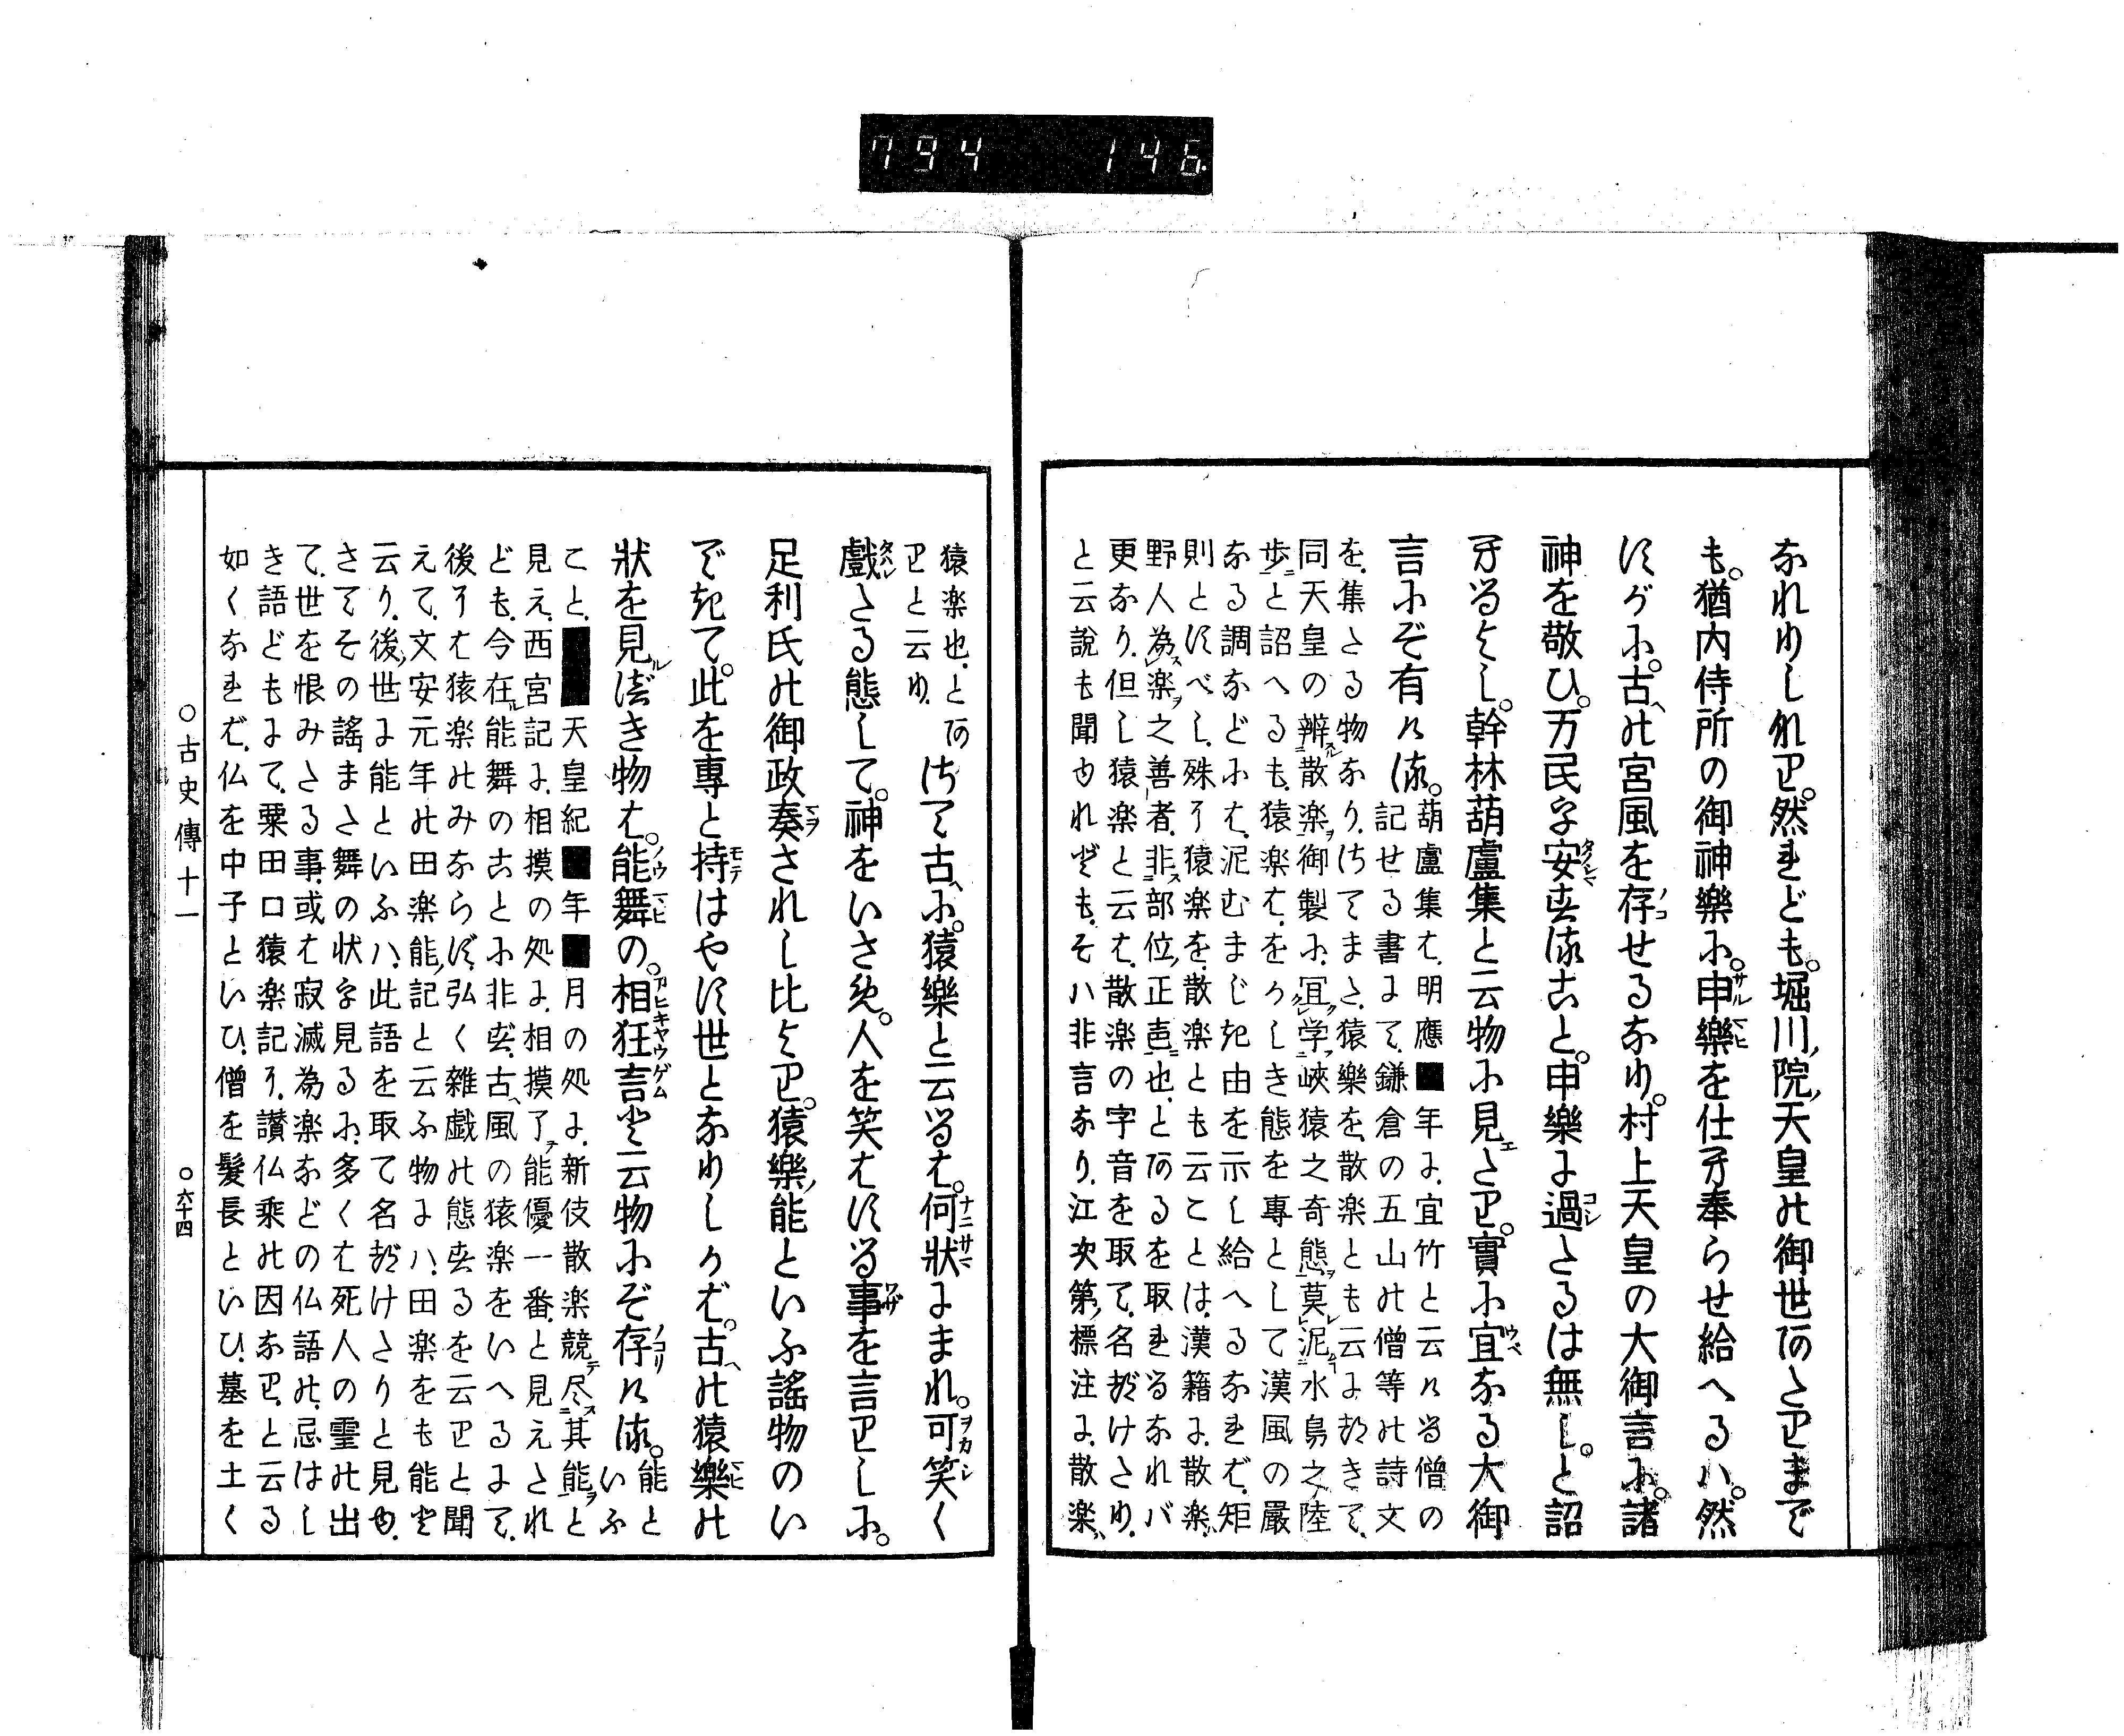 794 146.
なれりしなり。然れども。堀川ノ院ノ天皇の御世のころまで
も。猶内侍所の御神樂に。申樂を仕奉らせ給へるハ。然
すがに。古ヘの宮風を存せるなり。村上天皇の大御言に。諸
神を敬ひ。万民を安する古と。申樂に過たるは無し。と詔
幹林葫盧集と云物に見えたり。實に宜なる大御
言にぞ有ける。
葫盧集は。明應■年に。宜竹と云ける僧の
記せる書にて。鎌倉の五山の僧等の詩文
を。集たる物なり。さてまた。猿樂を。散楽とも云によきて。
同天皇の。辨散楽御製に。冝学峽猿之奇態。莫泥水鳥之陸
歩と詔へるも。猿楽は。をかしき態を專として漢風の嚴
なる調などには。泥むまじき由を示し給へるなれば。矩
則とすべし。殊に猿楽を。散楽とも云ことは。漢籍に。散楽。
野人為楽之善者。非部位正声也。とあるを取れるなれバ
更なり。但し猿楽と云は。散楽の字音を取て。名づけたり。
と云説も聞ゆれども。そハ非言なり。江次第ノ標注に。散楽。
猿楽也。とあ
りと云り。
さて古ヘに。猿樂と云るは。何狀にまれ。可笑く
戲たる態して。神をいさめ。人を笑はする事を言りしに。
足利氏の御政奏されし比より。猿樂ノ能といふ謠物のい
でき て。此を專と持はやす世となりしかば。古ヘの猿樂の
狀を見ルべき物は。能舞の。相狂言と云物にぞ存ける。
能と
いふ
こと。■■天皇紀■年■月の処に。新伎散楽競尽其能と
見え。西宮記に。相摸の処に。相摸了能優一番。と見えたれ
ども。今在ル能舞のことに非ず。古ヘ風の猿楽をいへるにて。
後には猿楽のみならず。弘く雑戯の態するを云りと聞
えて。文安元年の田楽能ノ記と云ふ物にハ。田楽をも能と
云り。後ノ世に能といふハ。此語を取て名づけたりと見ゆ。
さてその謠また舞の状を見るに。多くは死人の霊の出
て。世を恨みたる事。或は寂滅為楽などの仏語の。忌はし
き語どもにて。粟田口猿楽記に。讃仏乘の因なり。と云る
如くなれば。仏を中子といひ。僧を髮長といひ。墓を土く
○古史傳十一 ○六十四